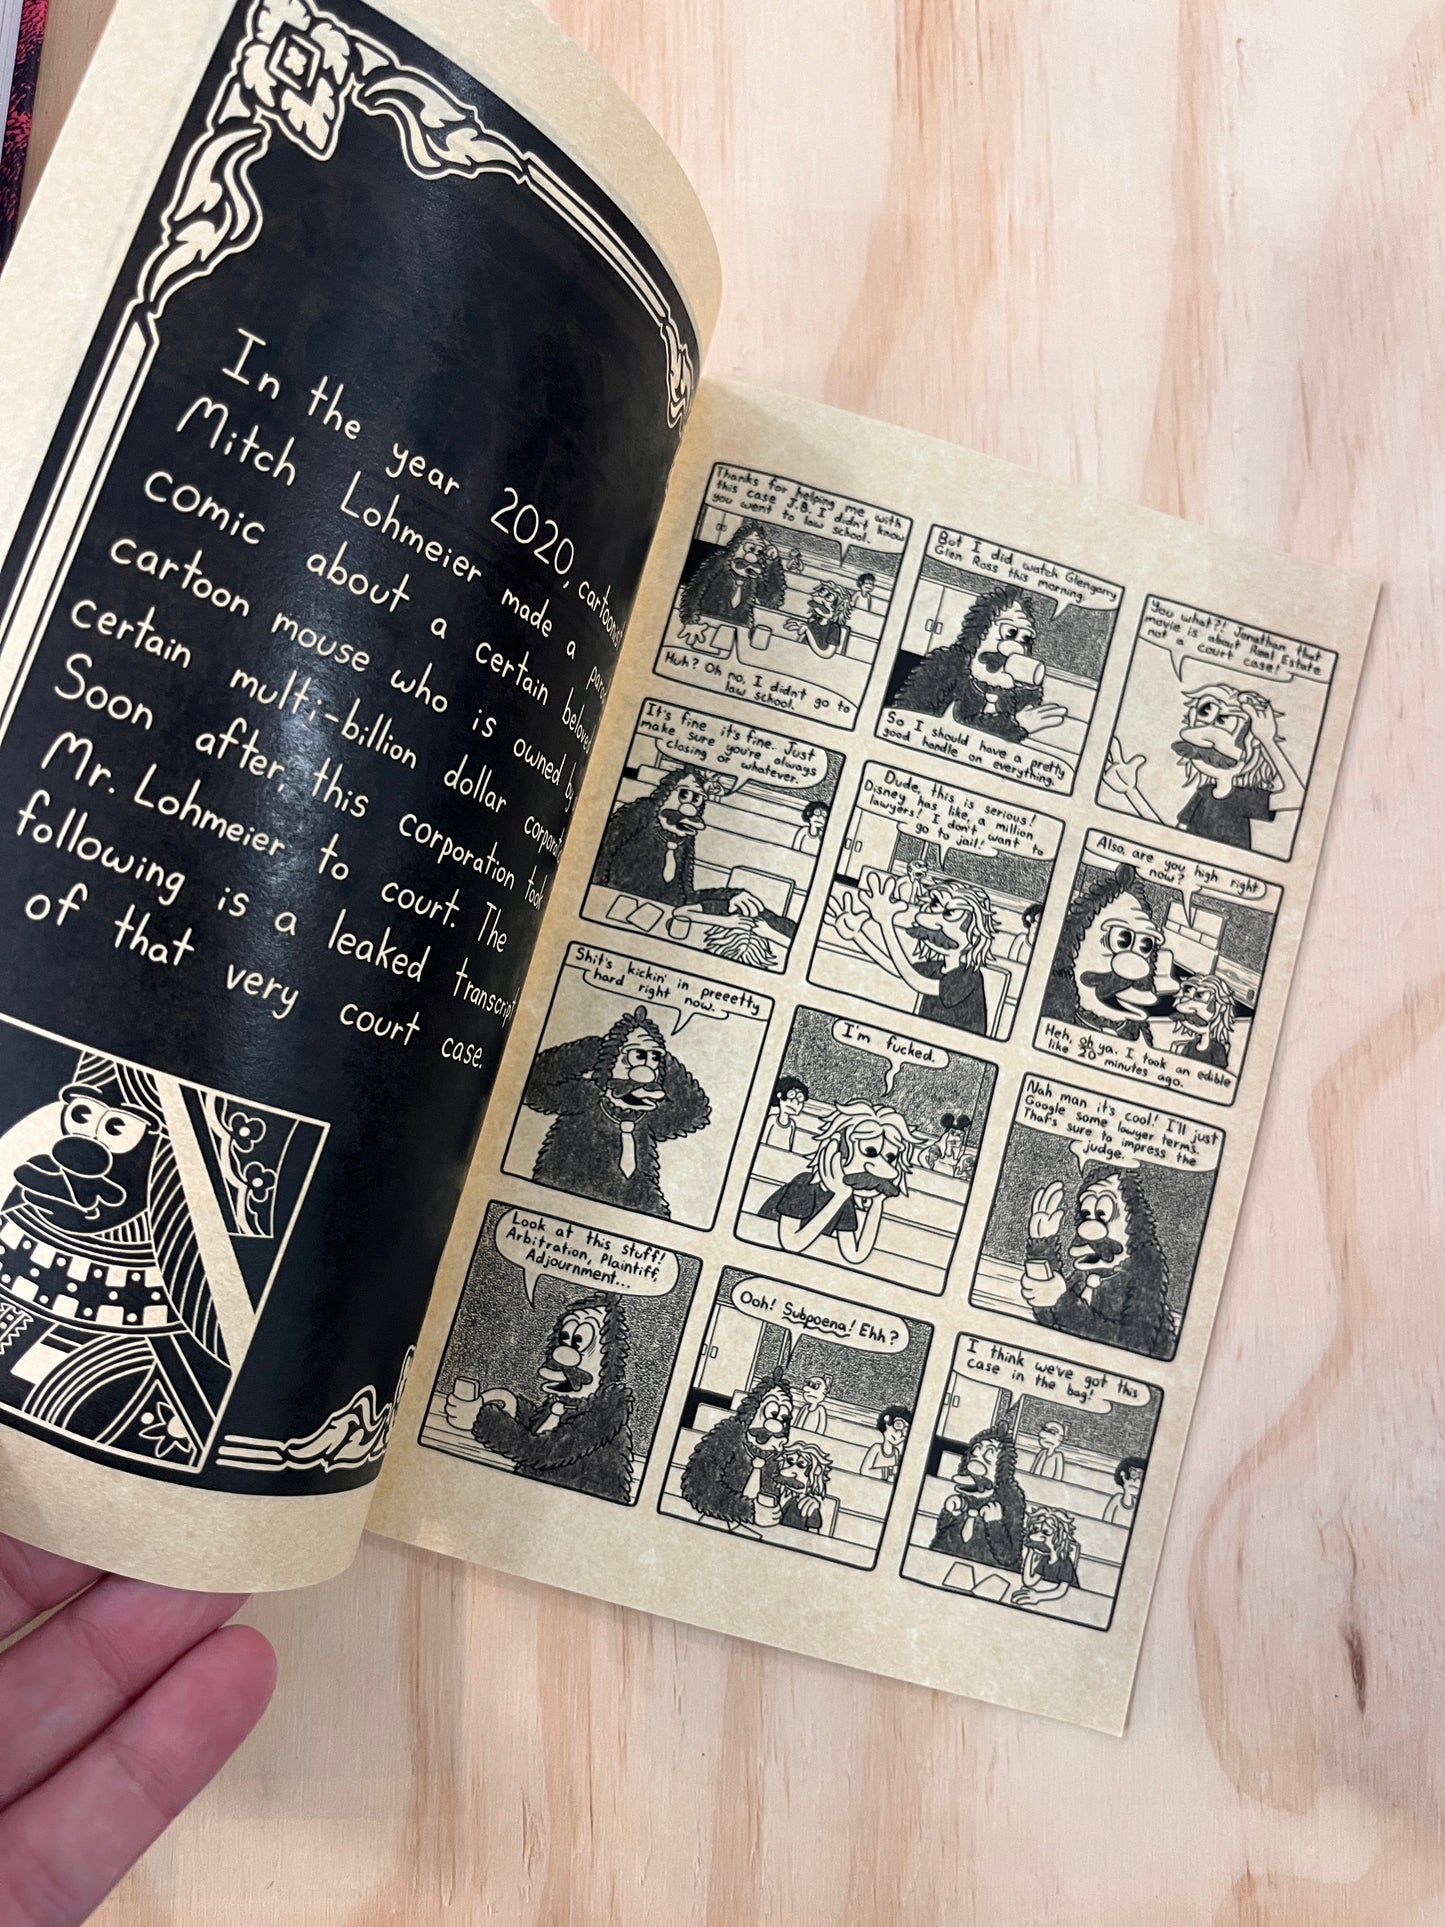 In the year 2020, cartoonist
Mitch Lohmeier made a
comic about a certain
cartoon mouse who is owned by
certain multi-billion dollar
Soon after, this corporation took
Mr. Lohmeier to court. The
following is a leaked transcript
of that very court case.
Thanks for helping me with
this case J.B. I didn't know
you went to law school.
Huh? Oh no, I didn't go to
law school.
But I did watch Glengarry
Glen Ross this morning.
So I should have a pretty
good handle on everything.
You what?! Jonathan that
movie is about Real Estate
not a court case!
It's fine it's fine. Just
make sure you're always
closing or whatever.
Dude, this is serious!
Disney has like, a million
lawyers! I don't want to
go to jail!
Also, are you high right
now?
Heh, oh ya. I took an edible
like 20 minutes ago.
Shit's kickin' in preeetty
hard right now.
I'm fucked.
Nah man it's cool! I'll just
Google some lawyer terms.
That's sure to impress the
judge.
Look at this stuff!
Arbitration, Plaintiff,
Adjournment...
Ooh! Subpoena! Ehh?
I think we've got this
case in the bag!